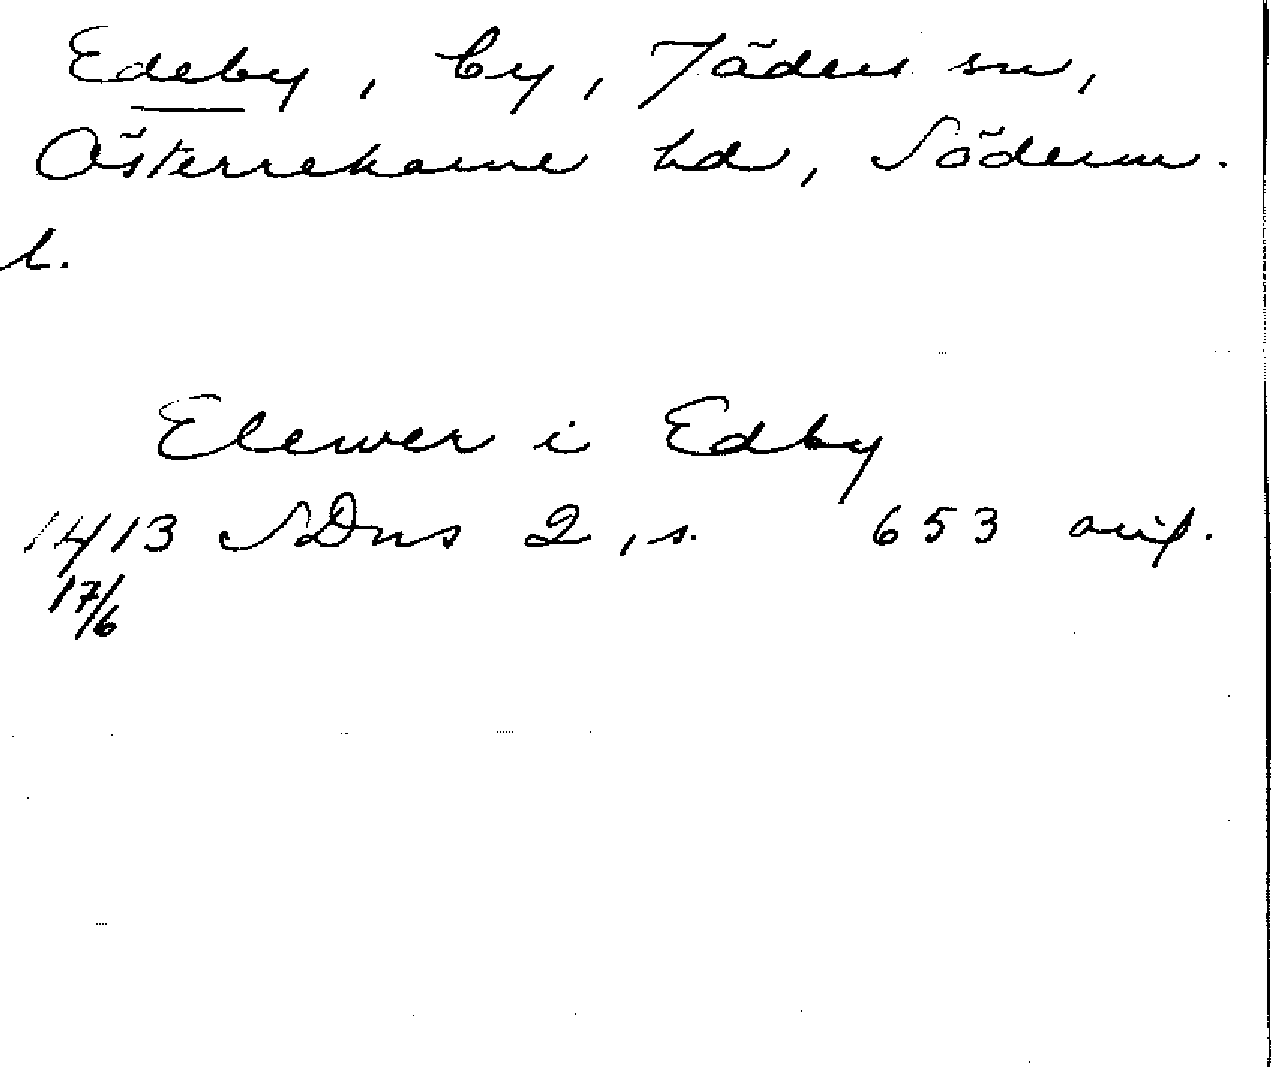 Edeby, by, Jäders sn,
Österrekarne hd, Söderm.
l.
Elewer i Edby
1413 SDns 2, s. 653 avsk.
17/6